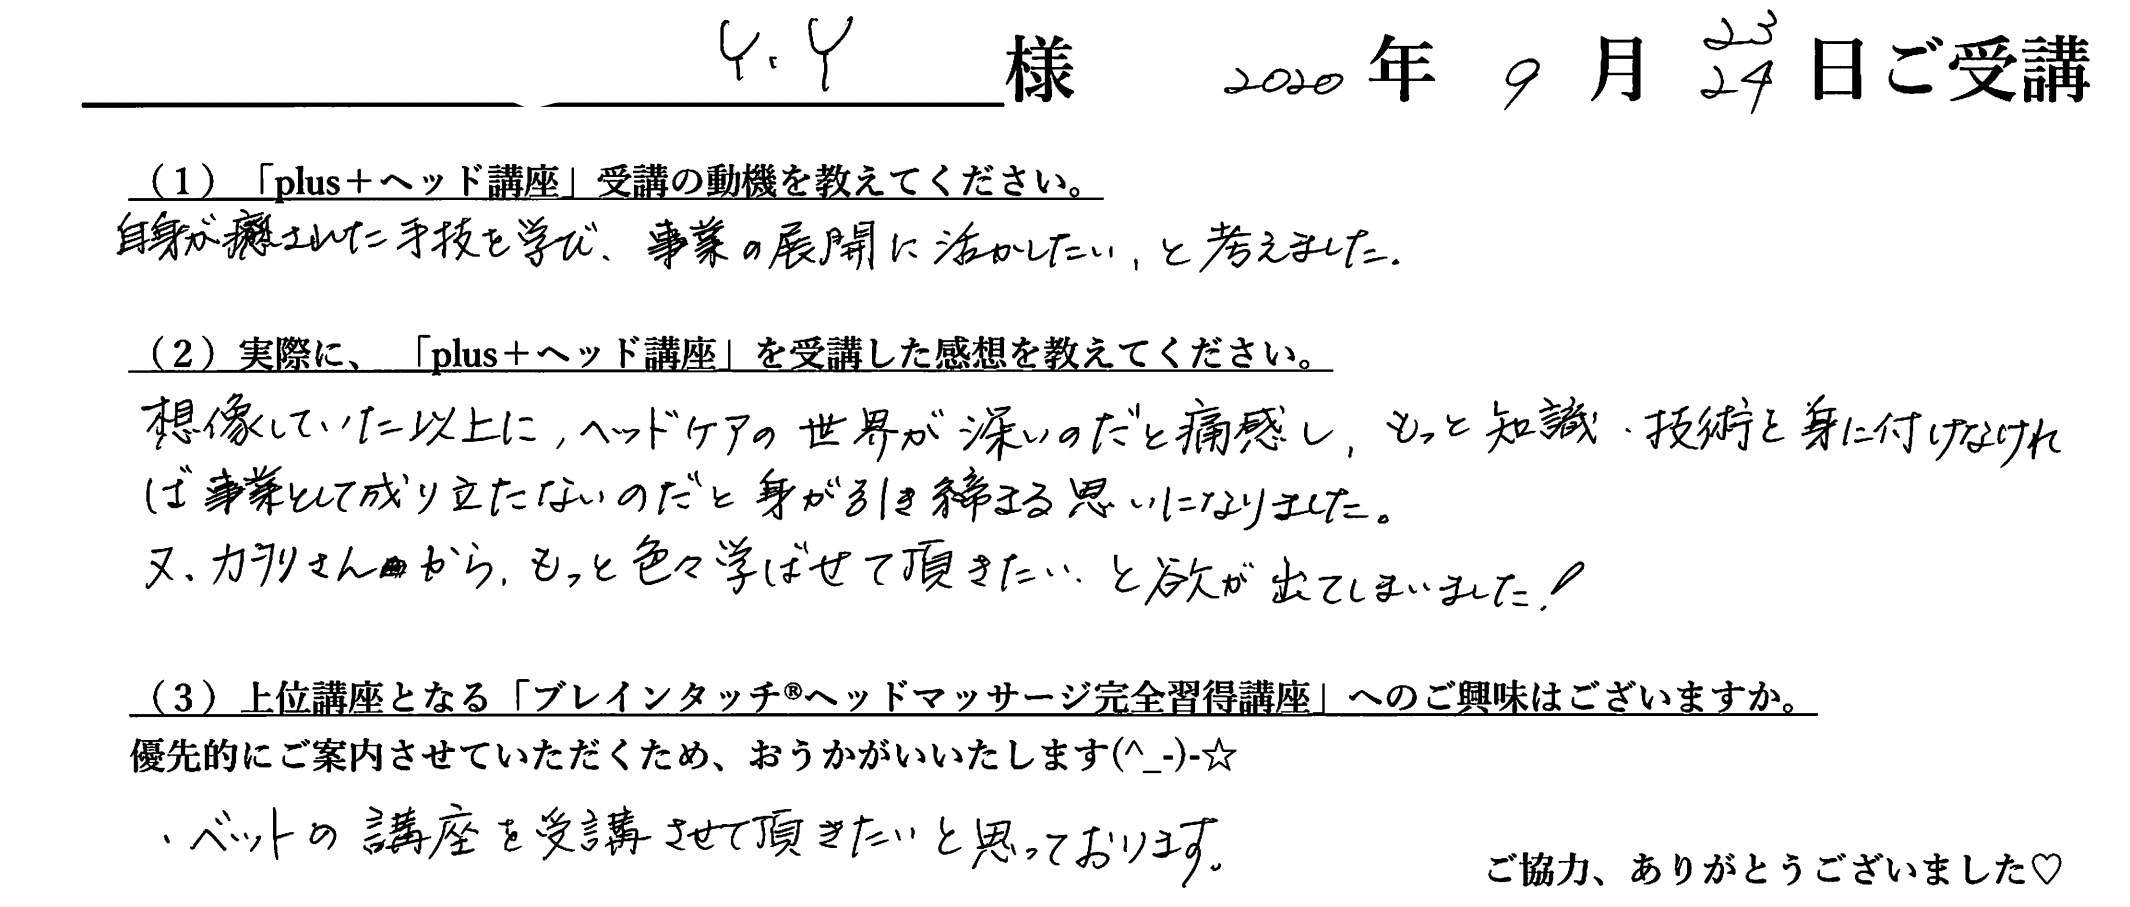 Y.Y 様 2020 年 9 月 23 24 日ご受講
（1）「plus＋ヘッド講座」受講の動機を教えてください。
自身が癒された手技を学び、事業の展開に活かしたい、と考えました.
（2）実際に、「plus＋ヘッド講座」を受講した感想を教えてください。
想像していた以上に，ヘッドケアの世界が深いのだと痛感し，もっと知識・技術を身に付けなけれ
ば事業として成り立たないのだと身が引き締まる思いになりました。
又、カヲリさんから，もっと色々学ばせて頂きたい、と欲が出てしまいました！
（3）上位講座となる「ブレインタッチ®ヘッドマッサージ完全習得講座」へのご興味はございますか。
優先的にご案内させていただくため、おうかがいいたします(^_-)-☆
・ベットの講座を受講させて頂きたいと思っております。
ご協力、ありがとうございました♡